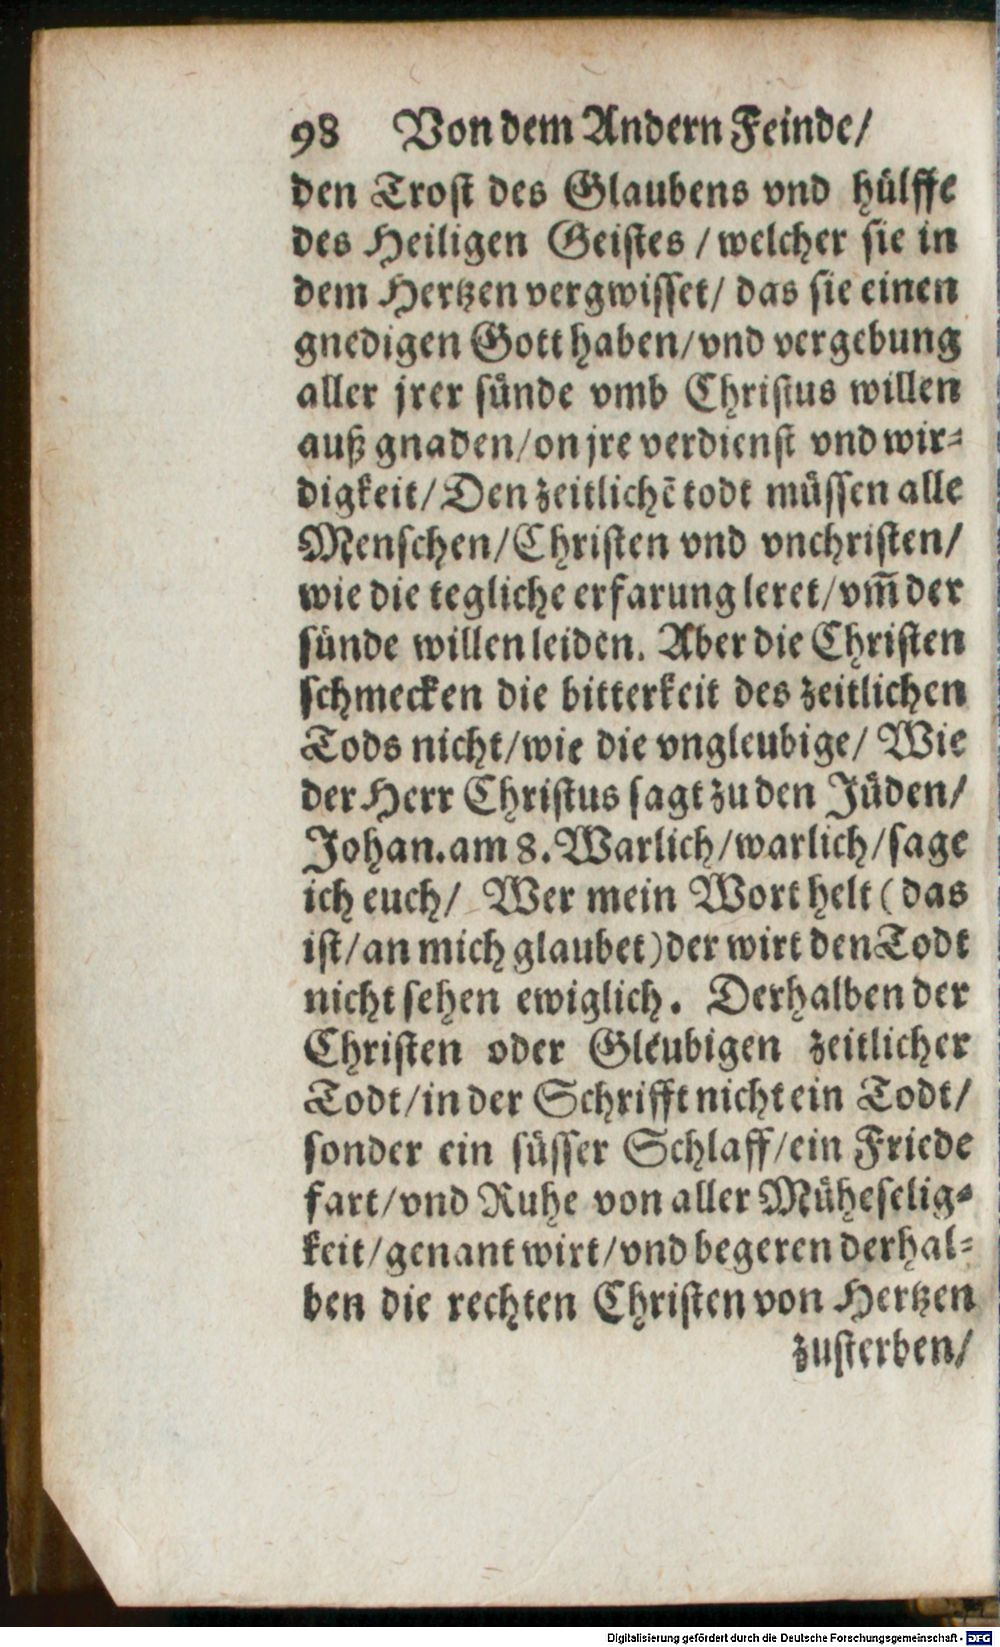 98 Von dem Andern Feinde/
den Trost des Glaubens vnd hülffe
des Heiligen Geistes / welcher sie in
dem Hertzen vergwisset/ das sie einen
gnedigen Gott haben/vnd vergebung
aller jrer sünde vmb Christus willen
auß gnaden/on jre verdienst vnd wir⸗
digkeit/Den zeitlichē todt müssen alle
Menschen/Christen vnd vnchristen/
wie die tegliche erfarung leret/vm̄ der
sünde willen leiden. Aber die Christen
schmecken die bitterkeit des zeitlichen
Tods nicht/wie die vngleubige/ Wie
der Herr Christus sagt zu den Jüden/
Johan.am 8. Warlich/warlich/sage
ich euch/ Wer mein Wort helt (das
ist/an mich glaubet) der wirt den Todt
nicht sehen ewiglich. Derhalben der
Christen oder Gleubigen zeitlicher
Todt/in der Schrifft nicht ein Todt/
sonder ein süsser Schlaff/ein Friede
fart/vnd Ruhe von aller Müheselig⸗
keit/genant wirt/vnd begeren derhal⸗
ben die rechten Christen von Hertzen
zusterben/
Digitalisierung gefördert durch die Deutsche Forschungsgemeinschaft - DFG